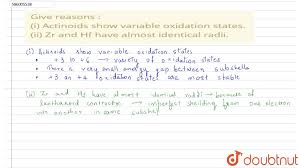 Give reasons :
(i) Actinoids show variable oxidation states.
(ii) Zr and Hf have almost identical radii.
(i) Actinoids show variable oxidation states
• +3 to +6 → variety of oxidation states
• There is very small energy gap between subshells
• +3 an +4 oxidation states are most stable
(ii) Zr and Hf have almost identical radii → because of
lanthanoid contraction → imperfect shielding from one electron
via another in same subshell
doubtnut